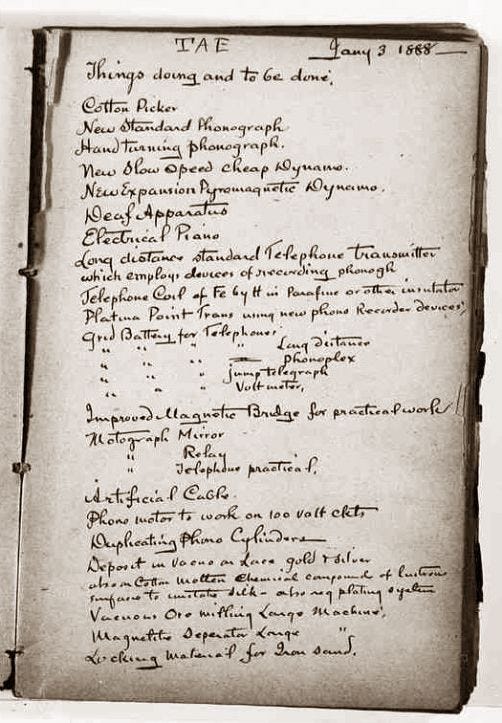 TAE
Jany 3 1888
Things doing and to be done.
Cotton Picker
New Standard Phonograph
Hand turning phonograph.
New Slow Speed cheap Dynamo.
New Expansion Pyromagnetic Dynamo.
Deaf Apparatus
Electrical Piano
Long distance standard Telephone Transmitter
which employs devices of recording phonogh
Telephone Coil of Fe by tt in Parafine or other insulator
Platina Point Trans using new phono Recorder devices,
Grid Battery for Telephones.
" " " " Long distance
" " " Phonoplex
" " " jump telegraph
" " " Voltmeter,
Improved Magnetic Bridge for practical work
Motograph Mirror
" Relay
" Telephone practical,
Artificial Cable.
Phono motor to work on 100 volt ckts
Duplicating Phono Cylinders
Deposit in vacuo on lace, gold & silver
also on Cotton molten chemical compound of lustrous
surface to imitate silk - also reg plating system
Vacuous Ore milling Large Machine,
Magnetic Seperator Large "
Locking material for Iron sand.